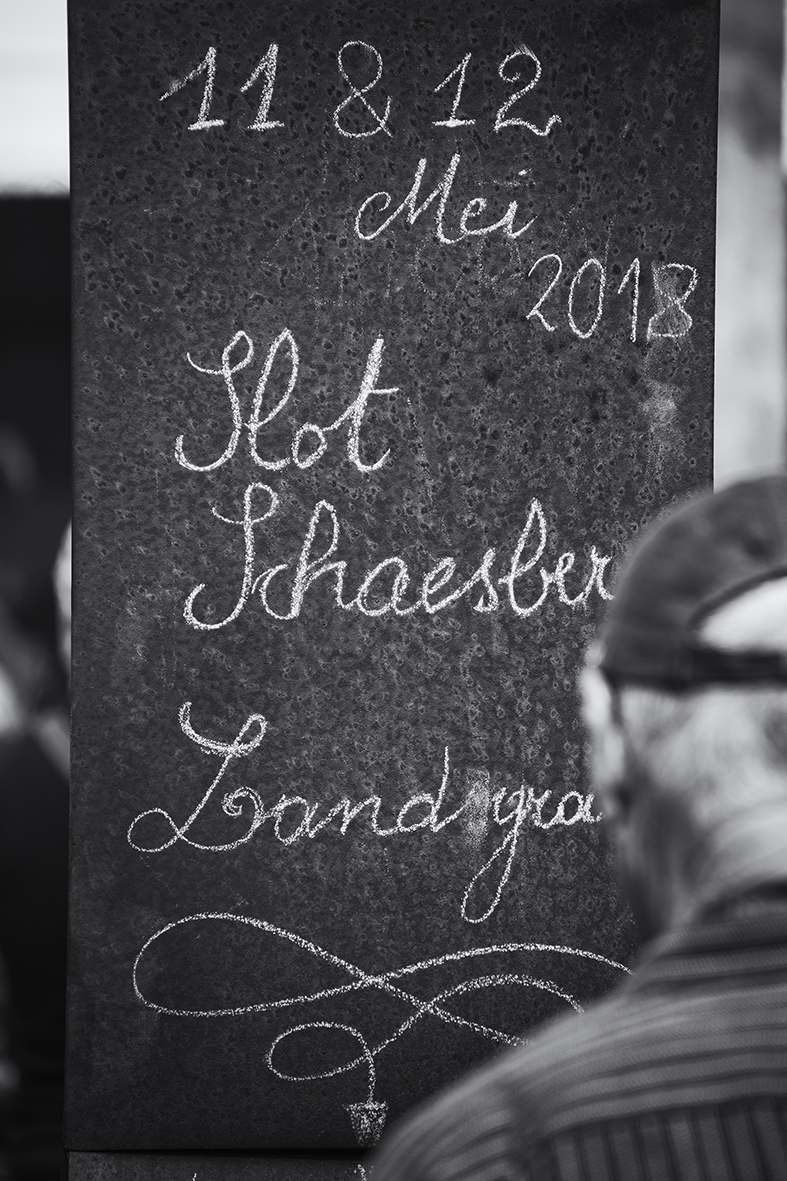 11 & 12
Mei
2018
Slot
Schaesber
Landgra